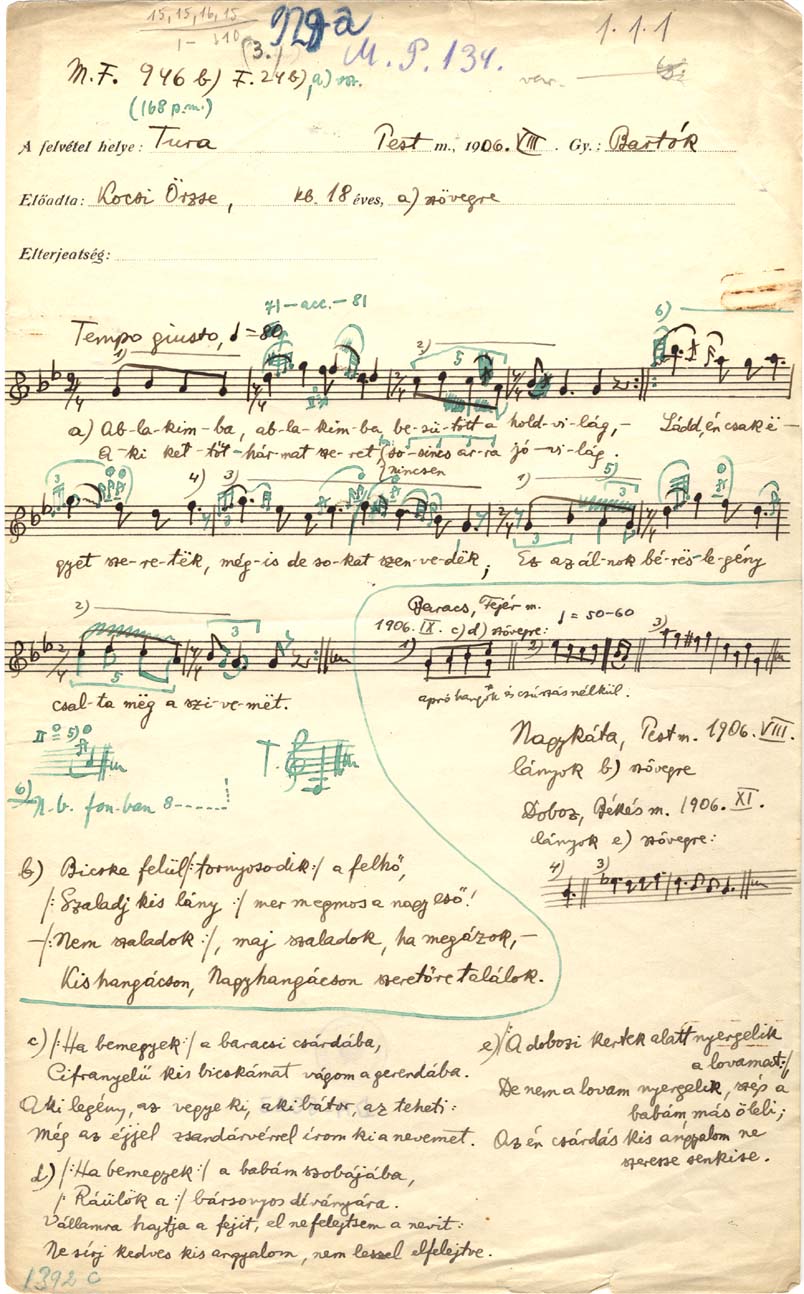 15, 15, 16, 15
1 – 10
(3.)
M. P. 134.
1. 1. 1
M.F. 946 b) F. 24 b), a) sz.
(168 p.m.)
var.
A felvétel helye: Tura Pest m., 1906. VIII. Gy.: Bartók
Előadta: Kocsi Örzse, kb. 18 éves, a) szövegre
Elterjedtség:
71 – acc. – 81
6)
Tempo giusto, ♩ = 80
1) 2) 5
a) Ab-la-kim-ba, ab-la-kim-ba be-sü-tött a hold-vi-lág, – Ládd, én csak ë –
A-ki ket-töt-hár-mat sze-ret, so-sincs ár-ra jó vi-lág.
nincsen
4) 3) 1) 5) 3
gyet sze-re-tëk, még-is de so-kat szen-ve-dëk; Ez az ál-nok bé-rës-le-gény
2) 3
5
csal-ta mëg a szi-ve-mët.
Baracs, Fejér m.
1906. IX. c) d) szövegre: ♩ = 50-60
1) 2) 3)
apró hangok és csúszás nélkül.
II 5)
T.
6) N.b. fon-ban 8
Nagykáta, Pest m. 1906. VIII.
lányok b) szövegre
Doboz, Békés m. 1906. XI.
lányok e) szövegre:
4) 3)
b) Bicske felül /: tornyosodik :/ a felhő,
/: Szaladj kis lány :/ mer megmos a nagy eső!
– /: Nem szaladok :/, maj szaladok, ha megázok, –
Kishangácson, Nagyhangácson szeretőre találok.
c) /: Ha bemegyek :/ a baracsi csárdába,
Cifranyelű kis bicskámat vágom a gerendába.
Aki legény, az vegye ki, aki bátor, az teheti:
Még az éjjel zsandárvérrel írom ki a nevemet.
d) /: Ha bemegyek :/ a babám szobájába,
/: Ráülök a :/ bársonyos díványára.
Vállamra hajtja a fejit, el ne felejtsem a nevit:
Ne sírj kedves kis angyalom, nem leszel elfelejtve.
e) /: A dobozi kertek alatt nyergelik
a lovamat :/,
De nem a lovam nyergelik, szép a
babám más öleli;
Az én csárdás kis angyalom ne
szeresse senki se.
1392 c